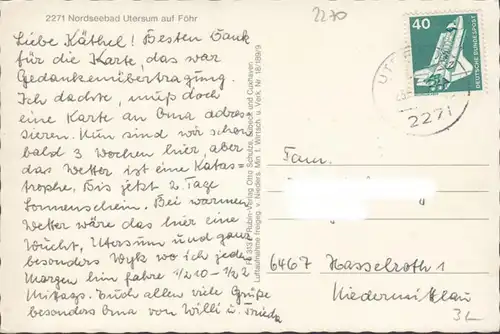 2271 Nordseebad Utersum auf Föhr
2270
Liebe Käthel! Besten Dank
für die Karte, das war
Gedankenübertragung.
Ich dachte, muß doch
eine Karte an Oma adres
sieren. Nun sind wir schon
bald 3 Wochen hier, aber
das Wetter ist eine Katas-
trophe. Bis jetzt 2 Tage
Sonnenschein. Bei warmem
Wetter wäre das hier eine
Wucht, Utersum und ganz
besonders Wyk wo ich jeden
Morgen hin fahre 1/2 10 - 1/2 2
Mittags. Euch allen viele Grüße
besonders Oma von Willi u. Frieda
Rubin-Verlag Otto Schulze, Lübeck und Cuxhaven
Luftaufnahme freigeg. v. Nieders. Min. f. Wirtsch. u. Verk. Nr. 18/189/9
40
DEUTSCHE BUNDESPOST
2271
Fam.
6467 Hasselroth 1
Niedermittlau